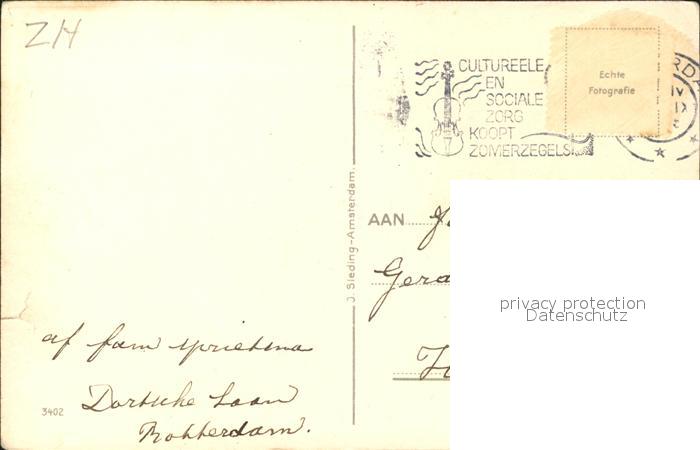 ZH
CULTUREELE
EN
SOCIALE
ZORG
KOOPT
ZOMERZEGELS
Echte
Fotografie
J. Sleding-Amsterdam.
AAN
Gera
privacy protection
Datenschutz
af fam
Dortsche Laan
Rotterdam.
3402